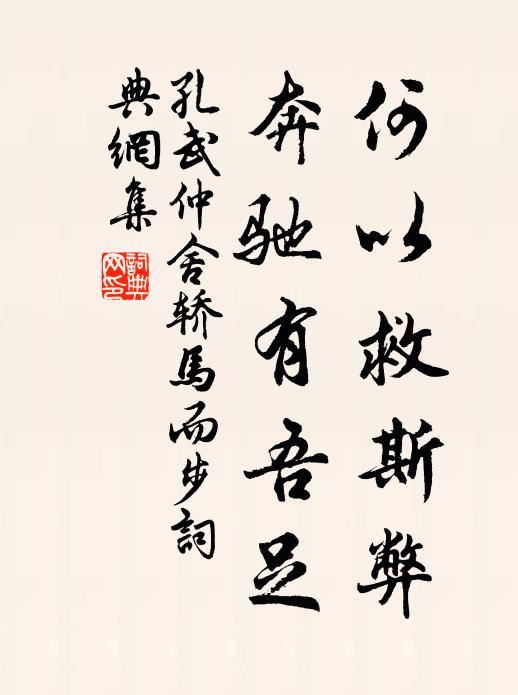 何以救斯弊
奔驰有吾足
孔武仲舍轿馬而步詞
典網集
詞典网印